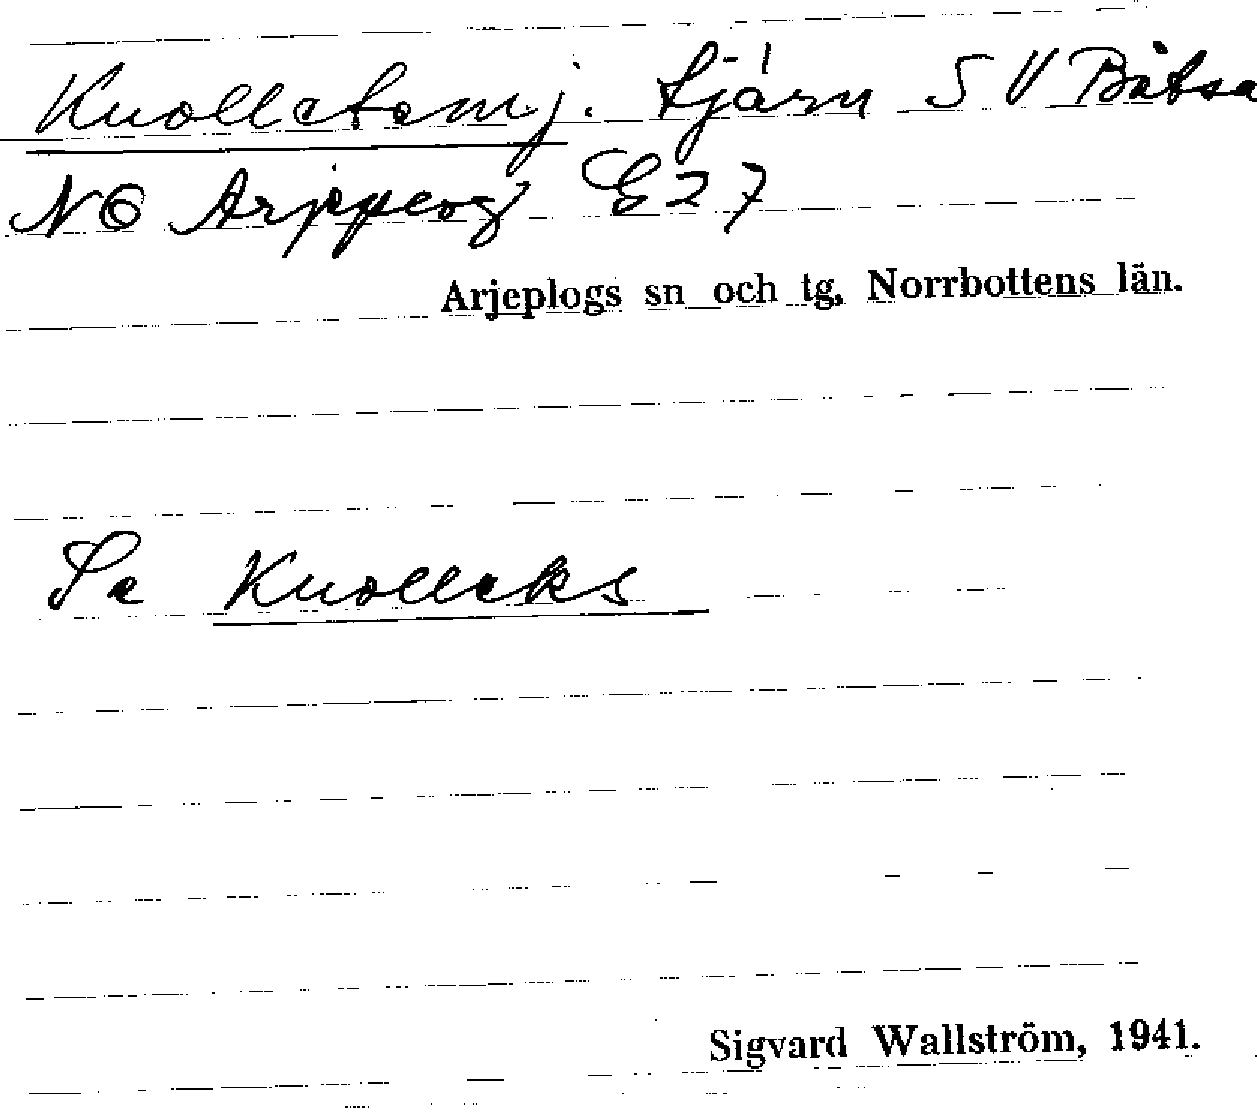 Knolletomj. tjärn SV Båtsa
NO Arjeplog E27
Arjeplogs sn och tg, Norrbottens län.
Se Knolleks
Sigvard Wallström, 1941.